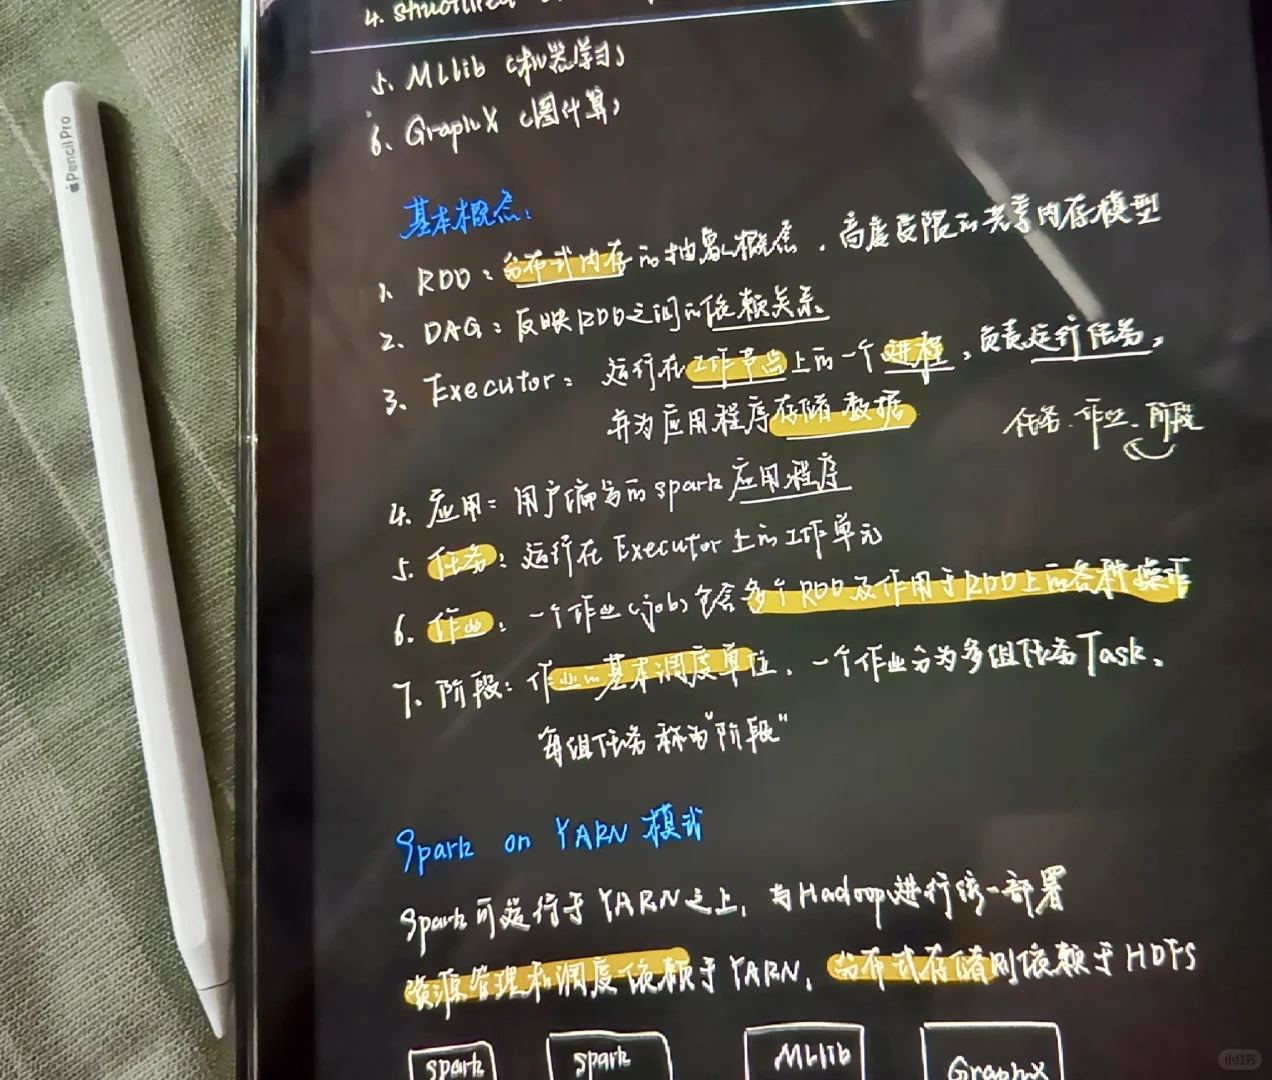 4. Structured
5、MLlib（机器学习）
6、GraphX（图计算）
基本概念：
1、RDD：分布式内存的抽象概念，高度受限的共享内存模型
2、DAG：反映RDD之间的依赖关系
3、Executor：运行在工作节点上的一个进程，负责运行任务，
并为应用程序存储数据
任务、作业、阶段
4. 应用：用户编写的spark应用程序
5、任务：运行在Executor上的工作单元
6、作业：一个作业（job）包含多个RDD及作用于RDD上的各种操作
7、阶段：作业的基本调度单位，一个作业分为多组任务Task、
每组任务称为"阶段"
Spark on YARN 模式
Spark可运行于YARN之上，与Hadoop进行统一部署
资源管理和调度依赖于YARN，分布式存储则依赖于HDFS
spark
spark
MLlib
GraphX
Pencil Pro
小红书